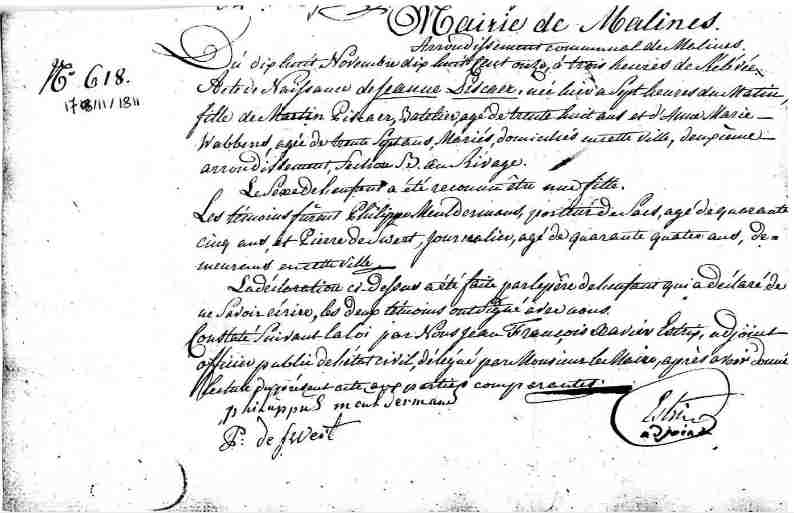 Mairie de Malines.
Arrondissement communal de Malines.
Du dix huit Novembre dix huit cent onze, à trois heures de relevée
N.º 618.
17/11/1811
Acte de Naissance de Jeanne Discaer, née hier à Sept heures du Matin,
fille de Martin Discaer, Batelier, agé de trente huit ans et d'Anne Marie
Wabbens, agée de trente Sept ans, Mariés, domiciliés en cette Ville, deuxième
arrondissement, Section B. au Rivage.
Le Sexe de l'enfant a été reconnu être une fille.
Les témoins furent Philippe Meuldermans, de Sacs, agé de quarante
cinq ans, et Pierre de Swert, Journalier, agé de quarante quatre ans, de-
meurans en cette Ville.
La déclaration ci-dessus a été faite par le père de l'enfant qui a déclaré de
ne Savoir écrire, les deux témoins ont signé avec nous.
Constaté Suivant la loi par Nous Jean François Xavier Estrix, adjoint
officier public de l'état civil, délégué par Monsieur le Maire, après avoir donné
lecture du présent acte aux parties comparantes.
philippus meuldermans
P: de Swert
Estrix
adjoint